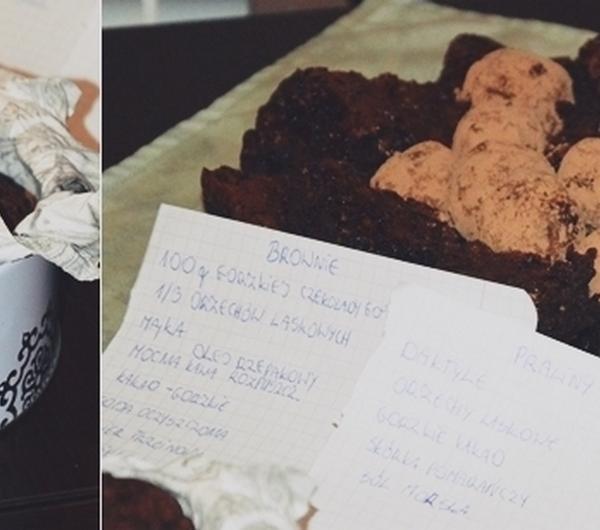 BROWNIE
100g GORZKIEJ CZEKOLADY
1/3 ORZECHÓW LASKOWYCH
MĄKA
OLEJ RZEPAKOWY
MOCNA KAWA
KAKAO - GORZKIE
SODA OCZYSZCZONA
PRALINY
DAKTYLE
ORZECHY LASKOWE
GORZKIE KAKAO
SKÓRKA POMARAŃCZY
SÓL MORSKA